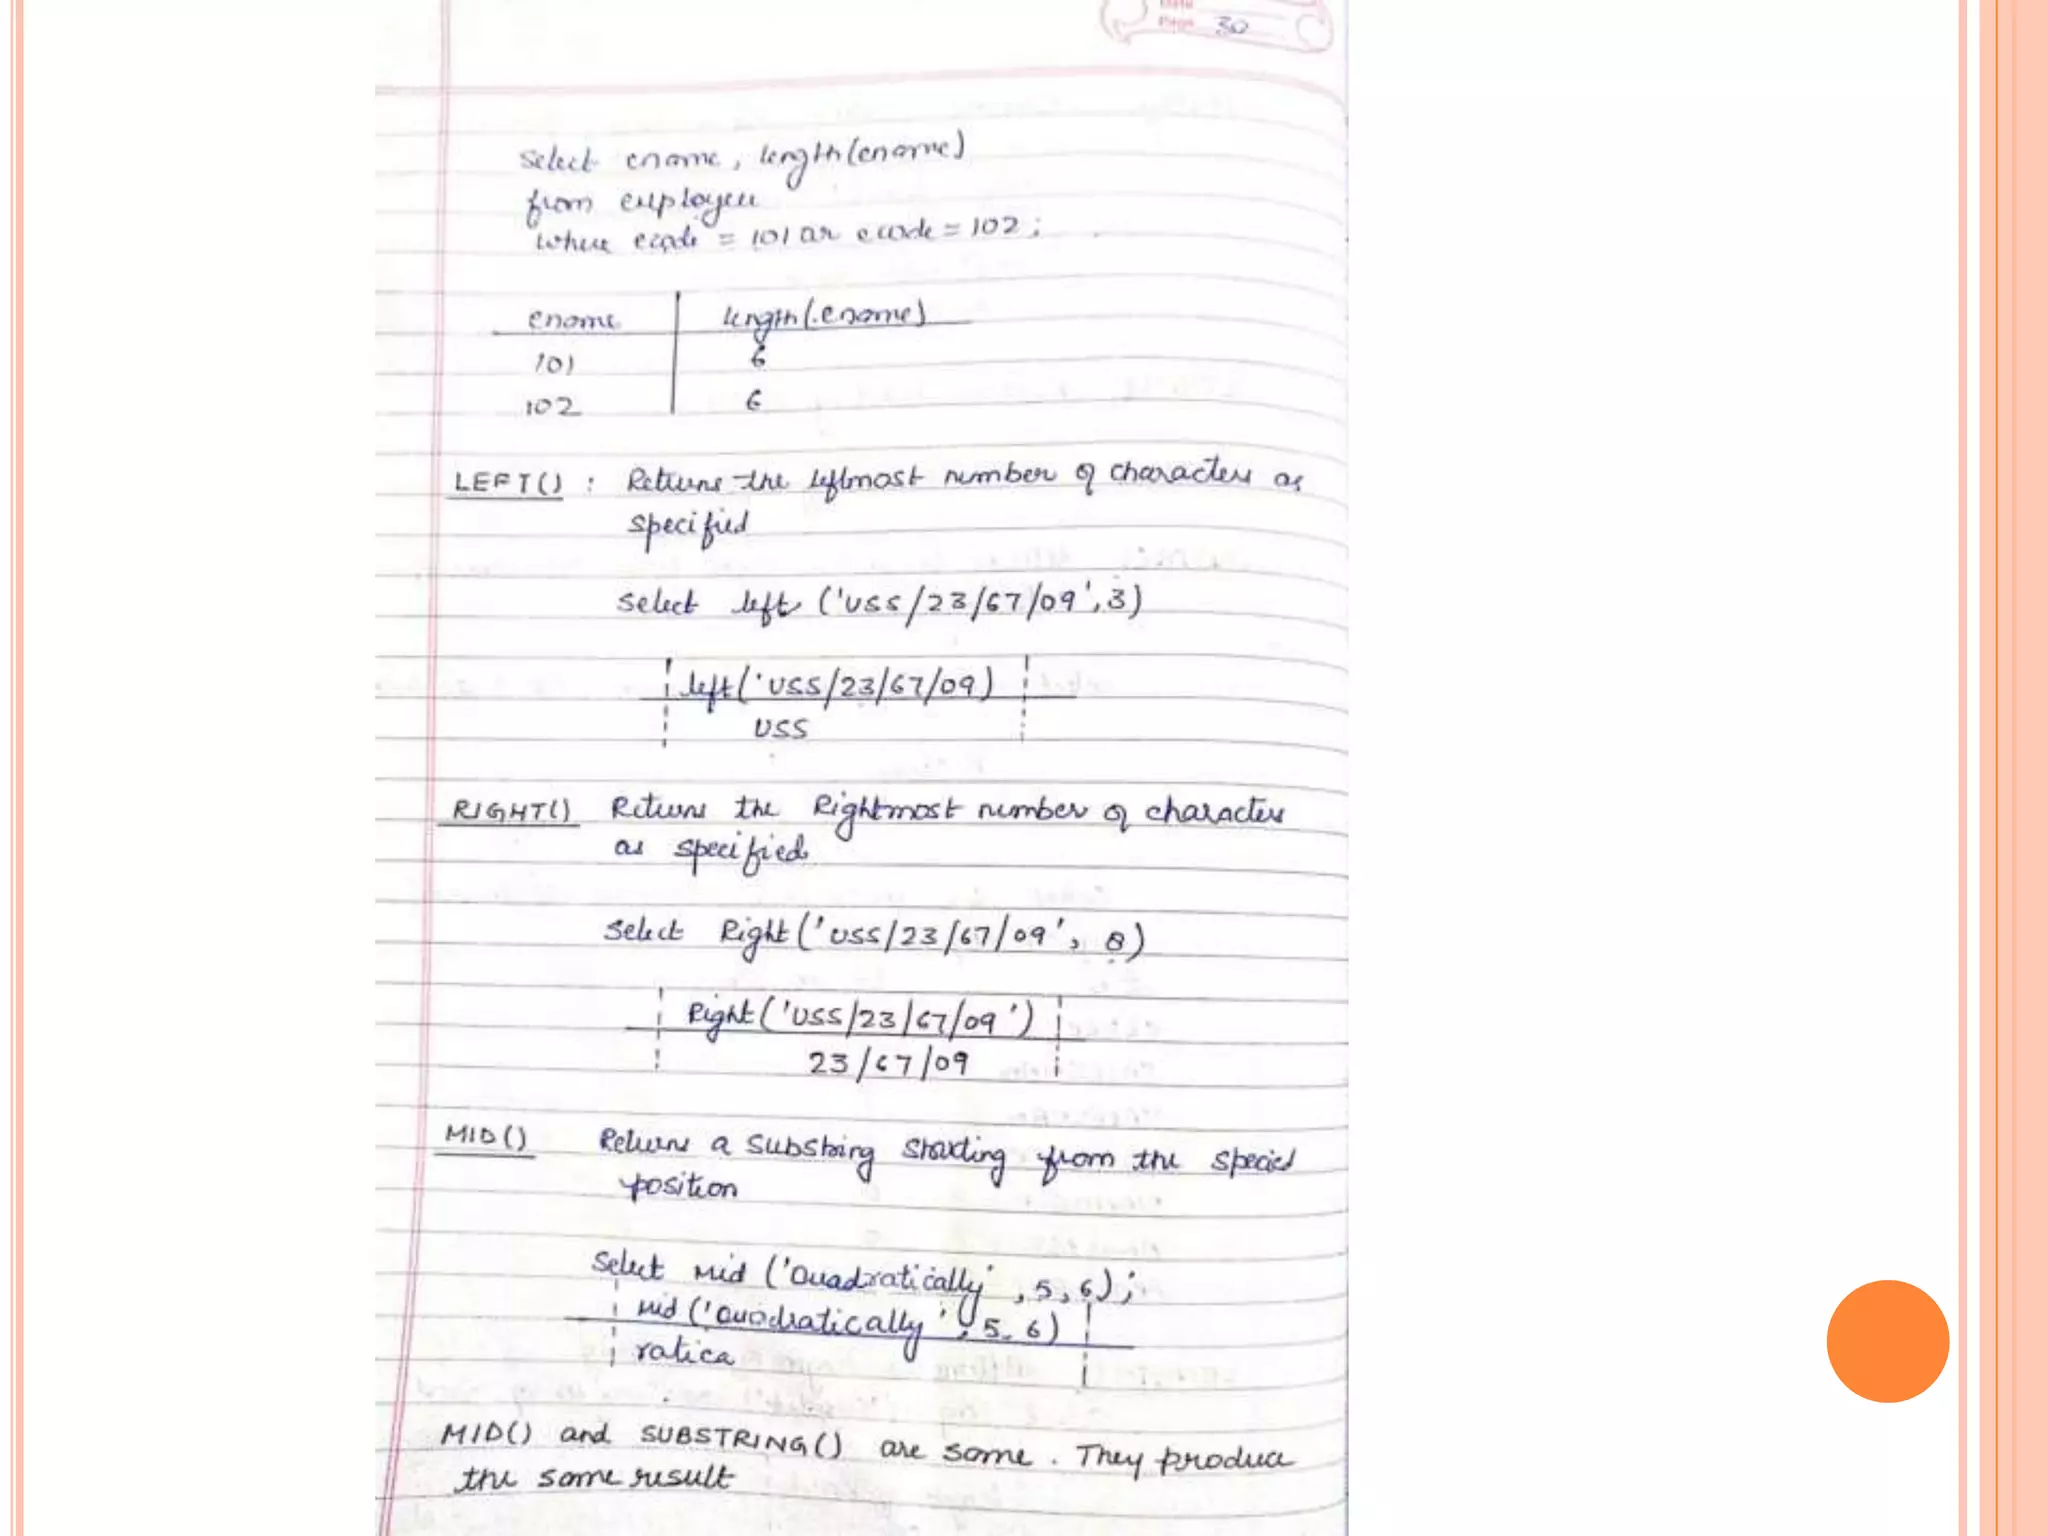 Date
Page 30
Select ename, length(ename)
from employee
where ecode = 101 or ecode = 102;
ename length(ename)
101 6
102 6
LEFT() : Returns the leftmost number of characters as
specified
Select left ('USS/23/67/09', 3)
left('USS/23/67/09)
USS
RIGHT() Returns the Rightmost number of characters
as specified
Select Right('USS/23/67/09', 8)
Right('USS/23/67/09')
23/67/09
MID() Returns a substring starting from the specied
position
Select Mid ('Quadratically', 5, 6);
Mid ('Quadratically', 5, 6)
ratica
MID() and SUBSTRING() are same. They produce
the same result